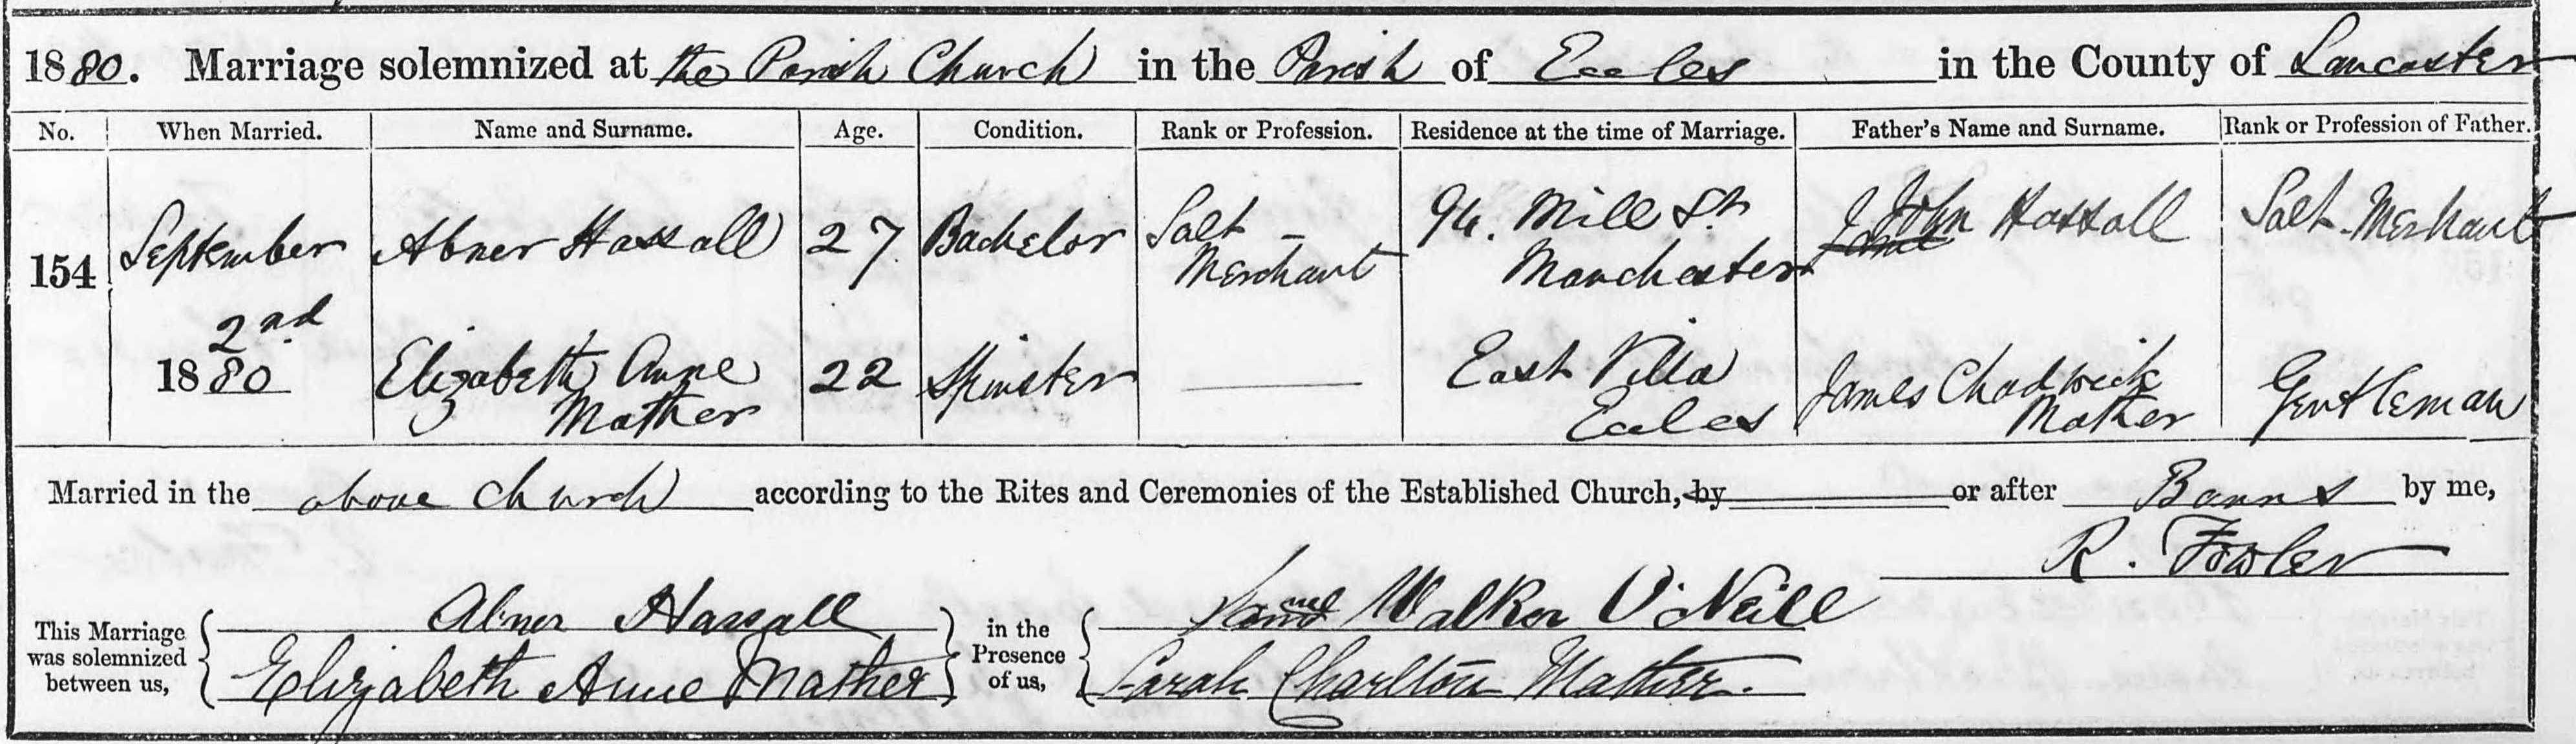 1880. Marriage solemnized at the Parish Church in the Parish of Eccles in the County of Lancaster
No. When Married. Name and Surname. Age. Condition. Rank or Profession. Residence at the time of Marriage. Father's Name and Surname. Rank or Profession of Father.
154 September Abner Hassall 27 Bachelor Salt - Merchant 96. Mill St. Manchester John Hassall Salt Merchant
2nd
1880 Elizabeth Anne Mather 22 Spinster East Villa Eccles James Chadwick Mather Gentleman
Married in the above Church according to the Rites and Ceremonies of the Established Church, by or after Banns by me,
R. Fowler
This Marriage was solemnized between us, Abner Hassall in the Presence of us, Walker O'Neill
Elizabeth Anne Mather Sarah Charlton Mather.